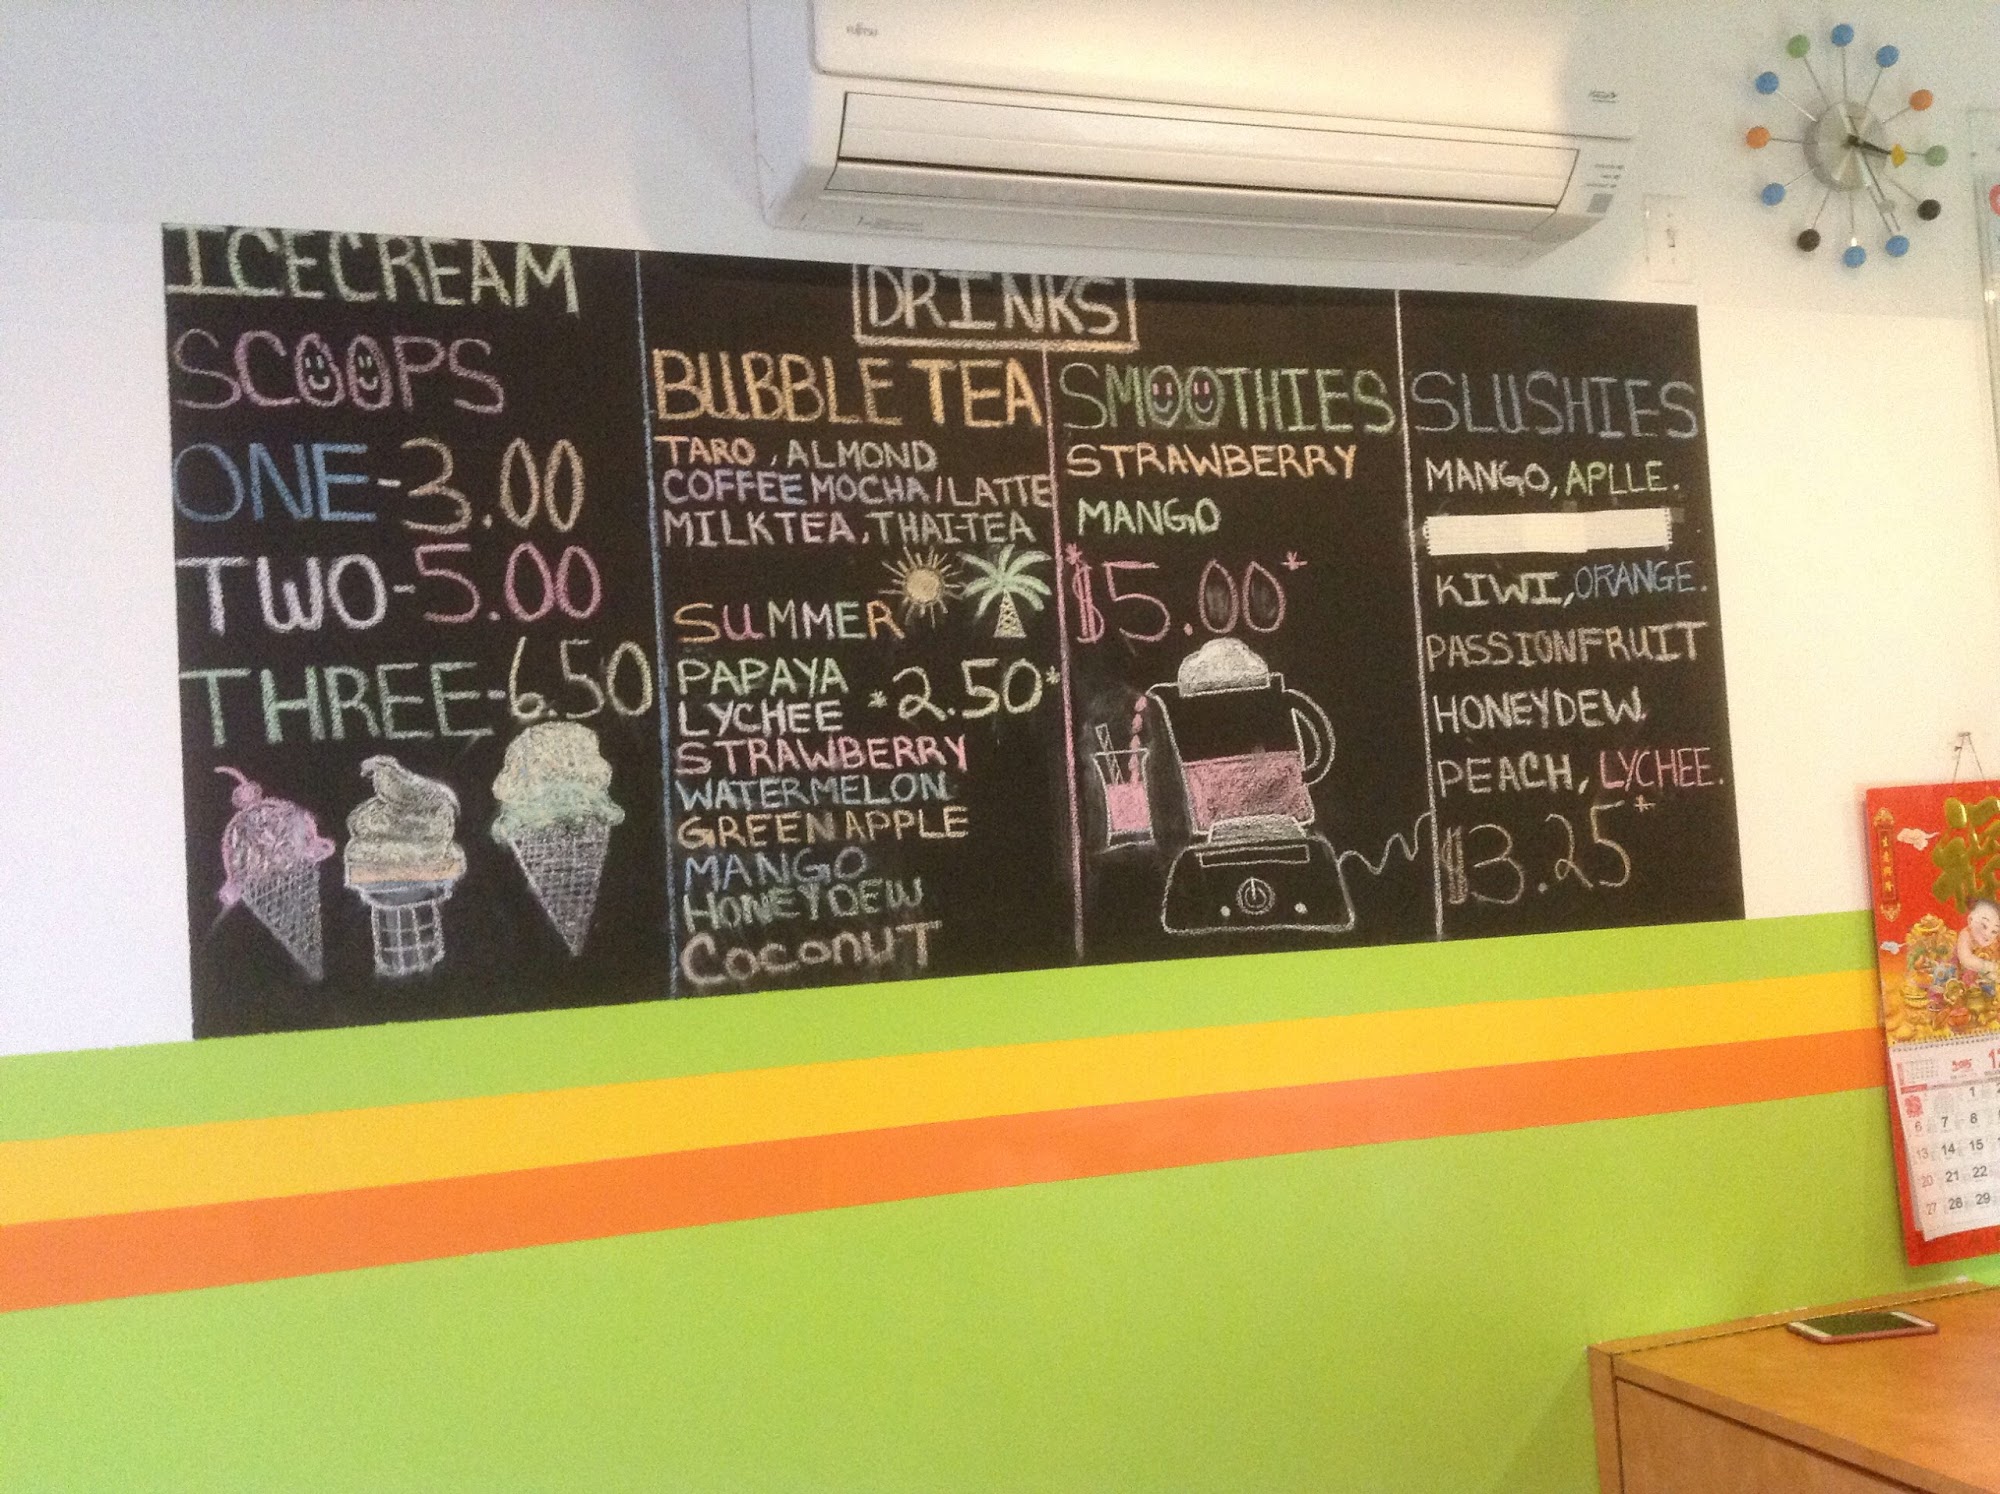 FUJITSU
ICECREAM
SCOOPS
ONE-3.00
TWO-5.00
THREE-6.50
DRINKS
BUBBLE TEA
TARO, ALMOND
COFFEE MOCHA/LATTE
MILKTEA, THAI-TEA
SUMMER
PAPAYA
LYCHEE *2.50*
STRAWBERRY
WATERMELON
GREEN APPLE
MANGO
HONEYDEW
COCONUT
SMOOTHIES
STRAWBERRY
MANGO
*$5.00*
SLUSHIES
MANGO, APLLE.
KIWI, ORANGE.
PASSIONFRUIT
HONEYDEW.
PEACH, LYCHEE.
$3.25*
1
6 7 8
13 14 15
20 21 22
27 28 29